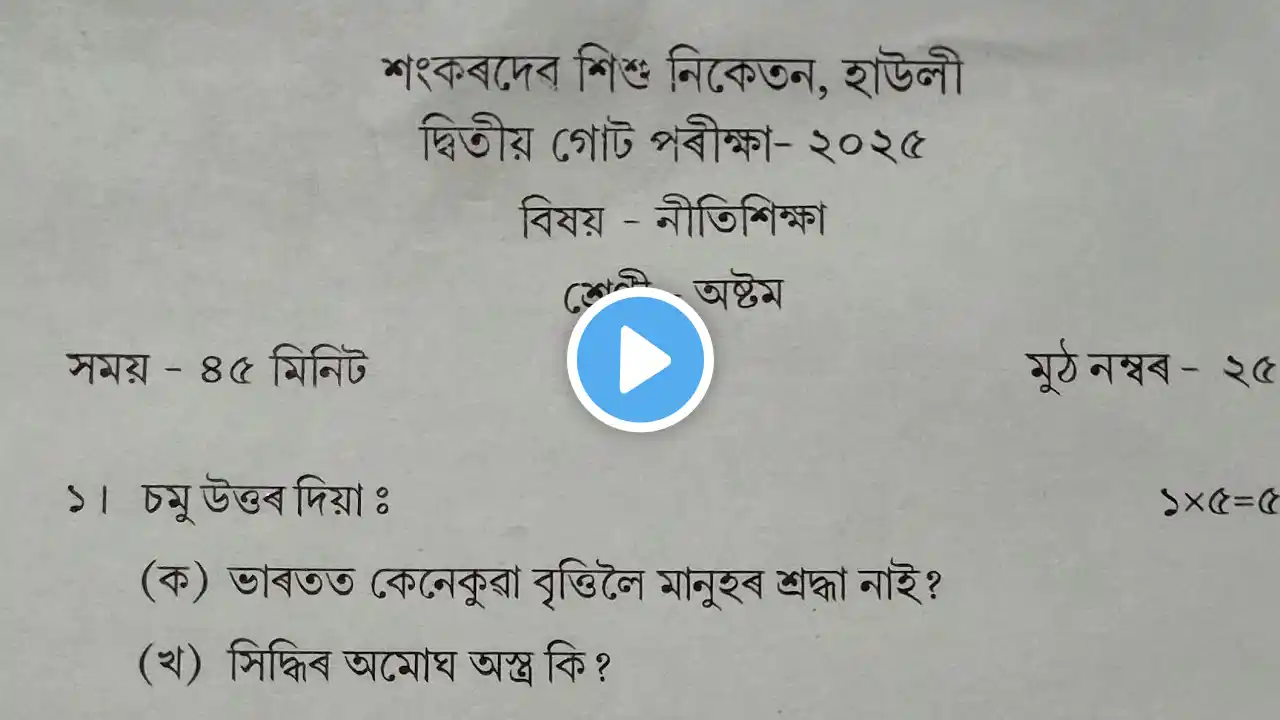 শংকৰদেৱ শিশু নিকেতন, হাউলী
দ্বিতীয় গোট পৰীক্ষা- ২০২৫
বিষয় - নীতিশিক্ষা
- অষ্টম
সময় - ৪৫ মিনিট
মুঠ নম্বৰ - ২৫
১। চমু উত্তৰ দিয়া ঃ
১×৫=৫
(ক) ভাৰতত কেনেকুৱা বৃত্তিলৈ মানুহৰ শ্ৰদ্ধা নাই?
(খ) সিদ্ধিৰ অমোঘ অস্ত্ৰ কি?